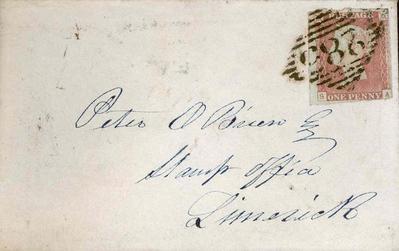 POSTAGE
ONE PENNY
Peter O Brien Esq
Stamp Office
Limerick